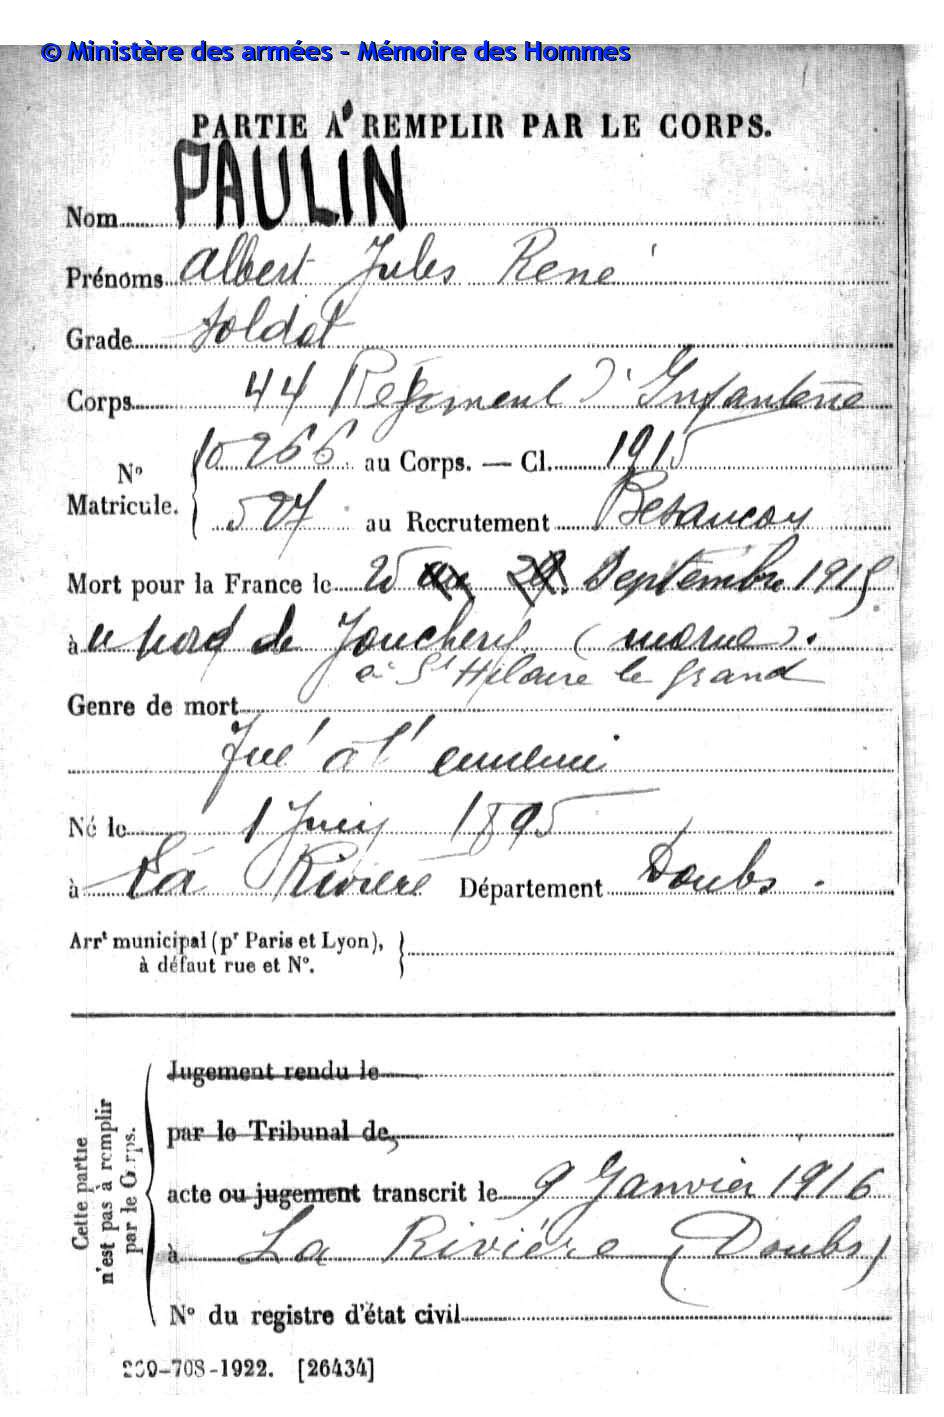 © Ministère des armées - Mémoire des Hommes
PARTIE A REMPLIR PAR LE CORPS.
Nom PAULIN
Prénoms Albert Jules René
Grade Soldat
Corps 44 Régiment d'Infanterie
10266 au Corps. — Cl. 1915
N° Matricule.
597 au Recrutement Besançon
Mort pour la France le 25 au 29 Septembre 1915
à Nord de Jonchery (marne).
à St Hilaire le grand
Genre de mort
Tué à l'ennemi
Né le 1 Juin 1895
à La Rivière Département Doubs.
Arrt municipal (pr Paris et Lyon),
à défaut rue et N°.
Cette partie
n'est pas à remplir
par le Corps.
Jugement rendu le
par le Tribunal de,
acte ou jugement transcrit le 9 Janvier 1916
à La Rivière (Doubs)
N° du registre d'état civil
-708-1922. [26434]